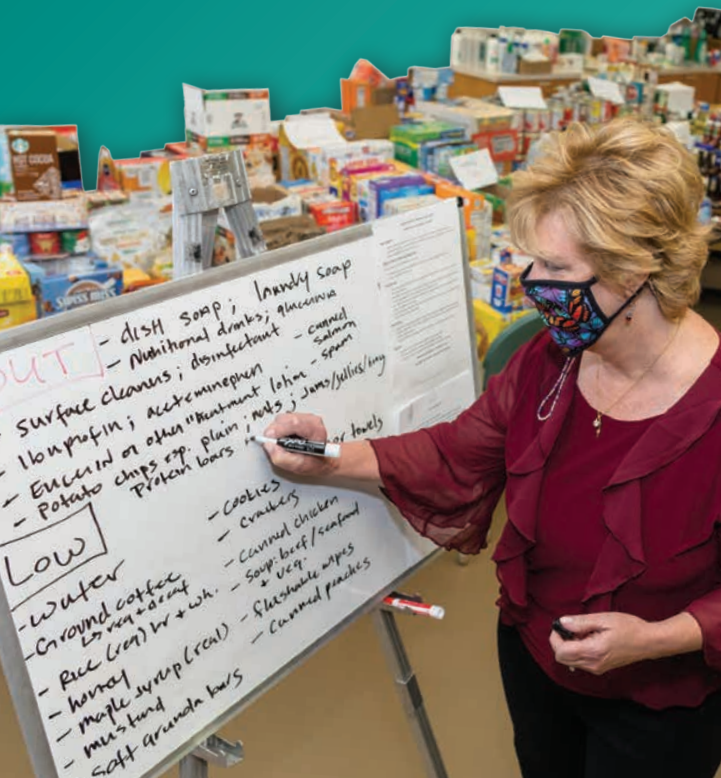 HOT COCOA
SWISS MISS
OUT
- dish soap; laundry soap
- Nutritional drinks; glucerna
- surface cleaners; disinfectant
- canned salmon
- Ibuprofin; aceteminophen
- spam
- Eucerin or other "treatment lotion
- Potato chips esp. plain; nuts; Jams/jellies/
Protein bars
towels
LOW
- water
- Ground coffee
reg + decaf
- Rice (reg) br + wh.
- honey
- maple syrup (real)
- mustard
soft granola bars
- cookies
- crackers
- canned chicken
- soup: beef/seafood
+ veg.
- flushable wipes
- canned peaches